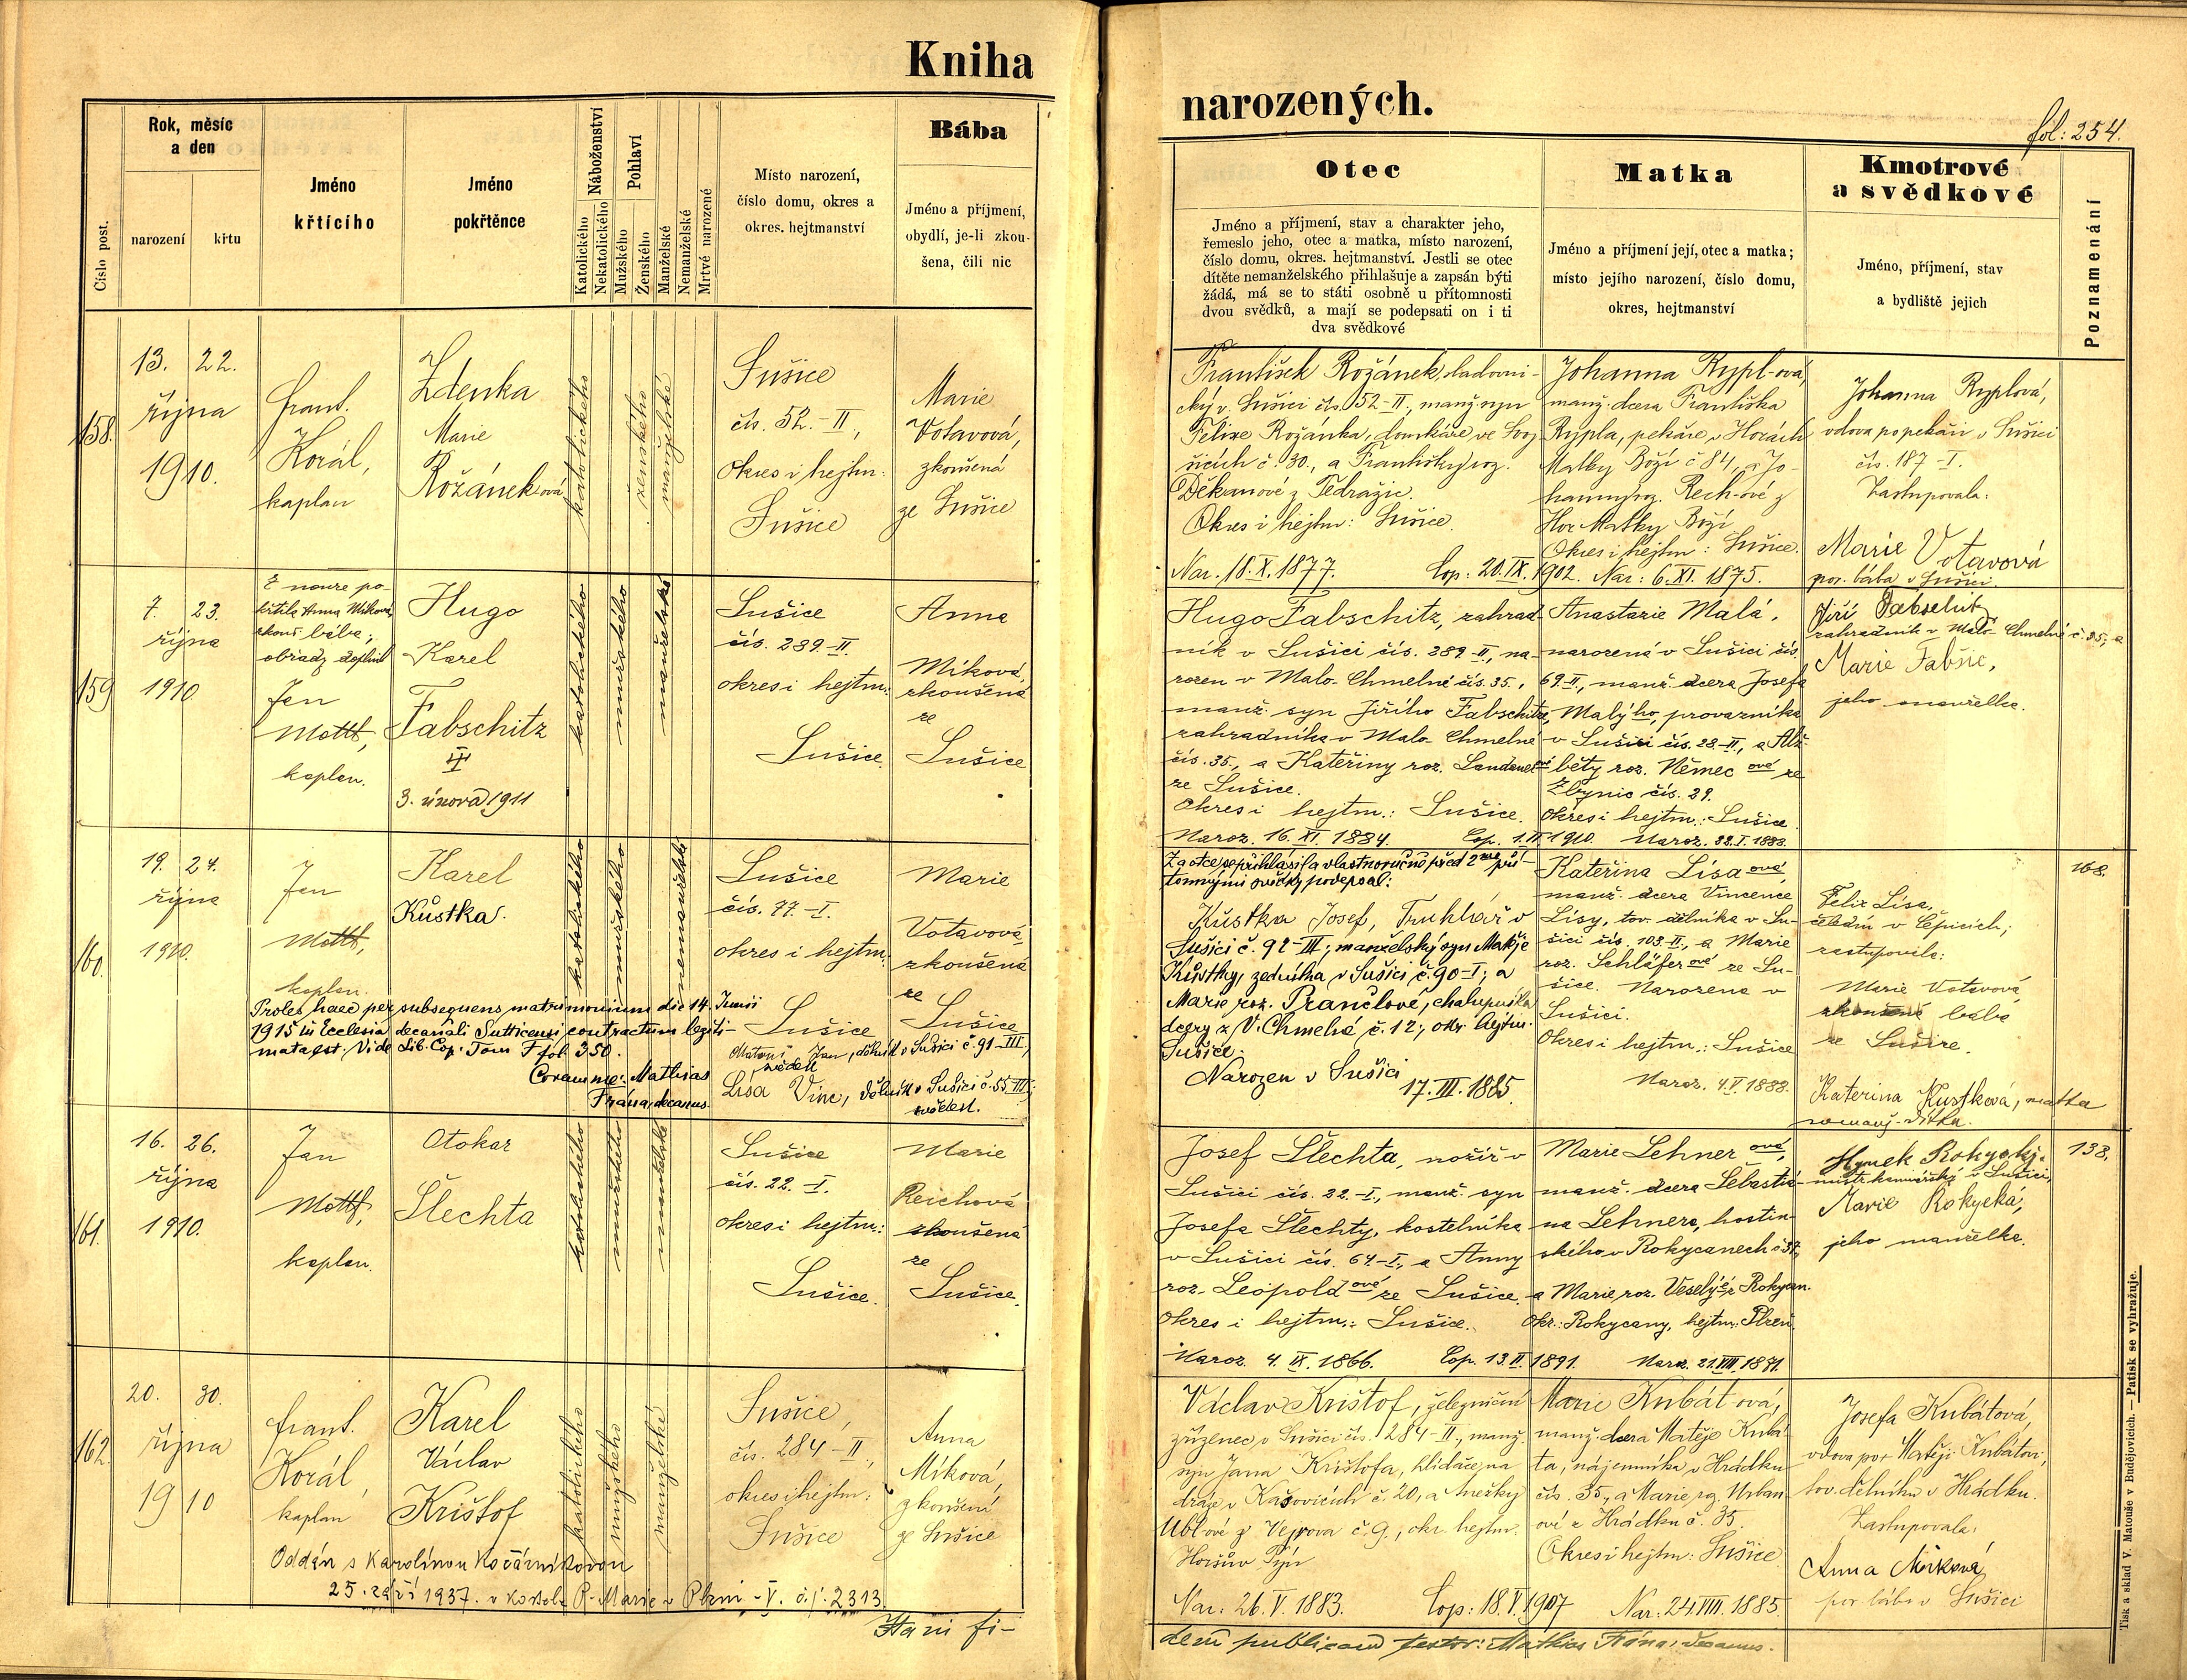 Kniha
narozených.
fol: 254.
Číslo post.
Rok, měsíc
a den
narození
křtu
Jméno
křtícího
Jméno
pokřtěnce
Náboženství
Katolického
Nekatolického
Pohlaví
Mužského
Ženského
Manželské
Nemanželské
Mrtvé narozené
Místo narození,
číslo domu, okres a
okres. hejtmanství
Bába
Jméno a příjmení,
obydlí, je-li zkou-
šena, čili nic
Otec
Jméno a příjmení, stav a charakter jeho,
řemeslo jeho, otec a matka, místo narození,
číslo domu, okres. hejtmanství. Jestli se otec
dítěte nemanželského přihlašuje a zapsán býti
žádá, má se to státi osobně u přítomnosti
dvou svědků, a mají se podepsati on i ti
dva svědkové
Matka
Jméno a příjmení její, otec a matka;
místo jejího narození, číslo domu,
okres, hejtmanství
Kmotrové
a svědkové
Jméno, příjmení, stav
a bydliště jejich
Poznamenání
158.
13. 22.
října
1910.
Frant.
Korál,
kaplan
Zdenka
Marie
Rožánek ová
katolického
ženského
manželské
Sušice
čís. 52.-II.,
Okres i hejtm:
Sušice
Marie
Votavová,
zkoušená
ze Sušice
František Rožánek, sladovni-
cký v Sušici čís. 52-II., manž. syn
Felixe Rožánka, domkáře ve Svoj-
šicích č. 30., a Františky roz.
Děkanové z Tedražic.
Okres i hejtm: Sušice.
Nar. 18. X. 1877. Cop: 20. IX. 1902.
Johanna Rypl-ová,
manž. dcera Františka
Rypla, pekaře v Horách
Matky Boží č 84, a Jo-
hanny roz. Rech-ové z
Hor Matky Boží
Okres i hejtm: Sušice.
Nar: 6. XI. 1875.
Johanna Ryplová,
vdova po pekaři v Sušici
čís. 187-I.
Zastupovala:
Marie Votavová
por. bába v Sušici
159
7. 23.
října
1910.
Z nouze po-
křtila Anna Míková,
zkouš. bába;
obřady doplnil
Jan
Mottl,
kaplan.
Hugo
Karel
Fabschitz
3. února 1911
katolického
mužského
manželské
Sušice
čís. 289-II.
okres i hejtm:
Sušice
Anna
Míková,
zkoušená
ze
Sušice
Hugo Fabschitz, zahrad-
ník v Sušici čís. 289-II., na-
rozen v Malo-Chmelné čís. 35.,
manž. syn Jiřího Fabschitze,
zahradníka v Malo-Chmelné
čís. 35., a Kateřiny roz.
ze Sušice.
Okres i hejtm.: Sušice.
Naroz. 16. XI. 1884.
Anastazie Malá,
narozená v Sušici čís.
69-II., manž. dcera Josefa
Malý ho, provazníka
v Sušici čís. 28-II., a Alž-
běty roz. Němec ové ze
Zbynic čís. 29.
Okres i hejtm.: Sušice.
Jiří
zahradník v Malo-Chmelné č. 35., a
Marie Fabšic,
jeho manželka.
160.
19. 24.
října
1910.
Jan
Mottl,
kaplan.
Karel
Kůstka.
katolického
mužského
nemanželské
Sušice
čís. 77-I.
okres i hejtm:
Sušice
Marie
Votavová,
zkoušená
ze
Sušice
Proles haec per subsequens matrimonium die 14. Junii
1915 in Ecclesia decanali Sutticensi contractum legiti-
mata est. Vide Lib. Cop. Tom F fol. 350.
Coram me: Mathias
Frána, decanus.
Jan, dělník v Sušici č. 91-III,
svědek
Lísa Vinc, dělník v Sušici č. 55 III;
svědek.
Za otce se přihlásil a vlastnoručně před 2ma pří-
tomnými svědky podepsal:
Kůstka Josef, Truhlář v
Sušici č. 92-III; manželský syn Matěje
Kůstky, zedníka v Sušici č. 90-I; a
Marie roz. Prančlové, chalupníka
dcery z V. Chmelné č. 12; okr. hejtm.
Sušice.
Narozen v Sušici
17. III. 1885.
Kateřina Lísa ová
manž. dcera Vincence
Lísy, tov. dělníka v Su-
šici čís. 103. II., a Marie
roz. Schläfer ové ze Su-
šice. Narozena v
Sušici.
Okres i hejtm.: Sušice
Naroz. 4. V. 1888.
Felix Lísa,
čeledín v Čejnicích;
zastupovala:
Marie Votavová,
zkoušená bába
ze Sušice.
Katerina Kustková, matka
168.
161.
16. 26.
října
1910.
Jan
Mottl,
kaplan.
Otokar
Šlechta
katolického
mužského
manželské
Sušice
čís. 22.-I.
okres i hejtm:
Sušice.
Marie
Reichová
zkoušená
ze
Sušice.
Josef Šlechta, nožíř v
Sušici čís. 22.-I., manž. syn
Josefa Šlechty, kostelníka
v Sušici čís. 64-I., a Anny
roz. Leopold ové ze Sušice.
Okres i hejtm.: Sušice.
Naroz. 4. IX. 1866. Cop. 13. II. 1891.
Marie Lehner ová,
manž. dcera Šebastia-
na Lehnera, hostin-
ského v Rokycanech č 37,
a Marie roz. Veselý z Rokycan.
Okr.: Rokycany, hejtm: Plzeň.
Hynek Rokycký,
mistr kominický v Sušici,
Marie Rokycká,
jeho manželka.
138.
162.
20. 30.
října
1910
Frant.
Korál,
kaplan
Karel
Václav
Krištof
katolického
mužského
manželské
Sušice,
čís. 284-II.,
okres i hejtm:
Sušice
Anna
Míková,
zkoušená
ze Sušice
Oddán s Karolínou Kočárníkovou
25. září 1937. v kostele P. Marie v Plzni-V. č.j. 2313.
Václav Krištof, železniční
zřízenec v Sušici čís. 284-II., manž.
syn Jana Krištofa, hlídače na
dráze v Kašovicích č. 20, a Anežky
Ublové z Vejrova č. 9., okr. hejtm.
Horšův Týn
Nar: 26. V. 1883. Cop: 18. V. 1907
Marie Kubát-ová,
manž. dcera Matěje Kubá-
ta, nájemníka v Hrádku
čís. 35., a Marie roz. Urban-
ové z Hrádku č. 35.
Okres i hejtm: Sušice
Nar: 24. VIII. 1885.
Josefa Kubátová,
vdova po Matěji Kubátovi,
tov. dělníku v Hrádku.
Zastupovala:
Anna Miková
por. bába v Sušici
Ita in fi-
dem publicam testor: Mathias Frána, decanus.
Tisk a sklad V. Matouše v Budějovicích. — Patisk se vyhražuje.